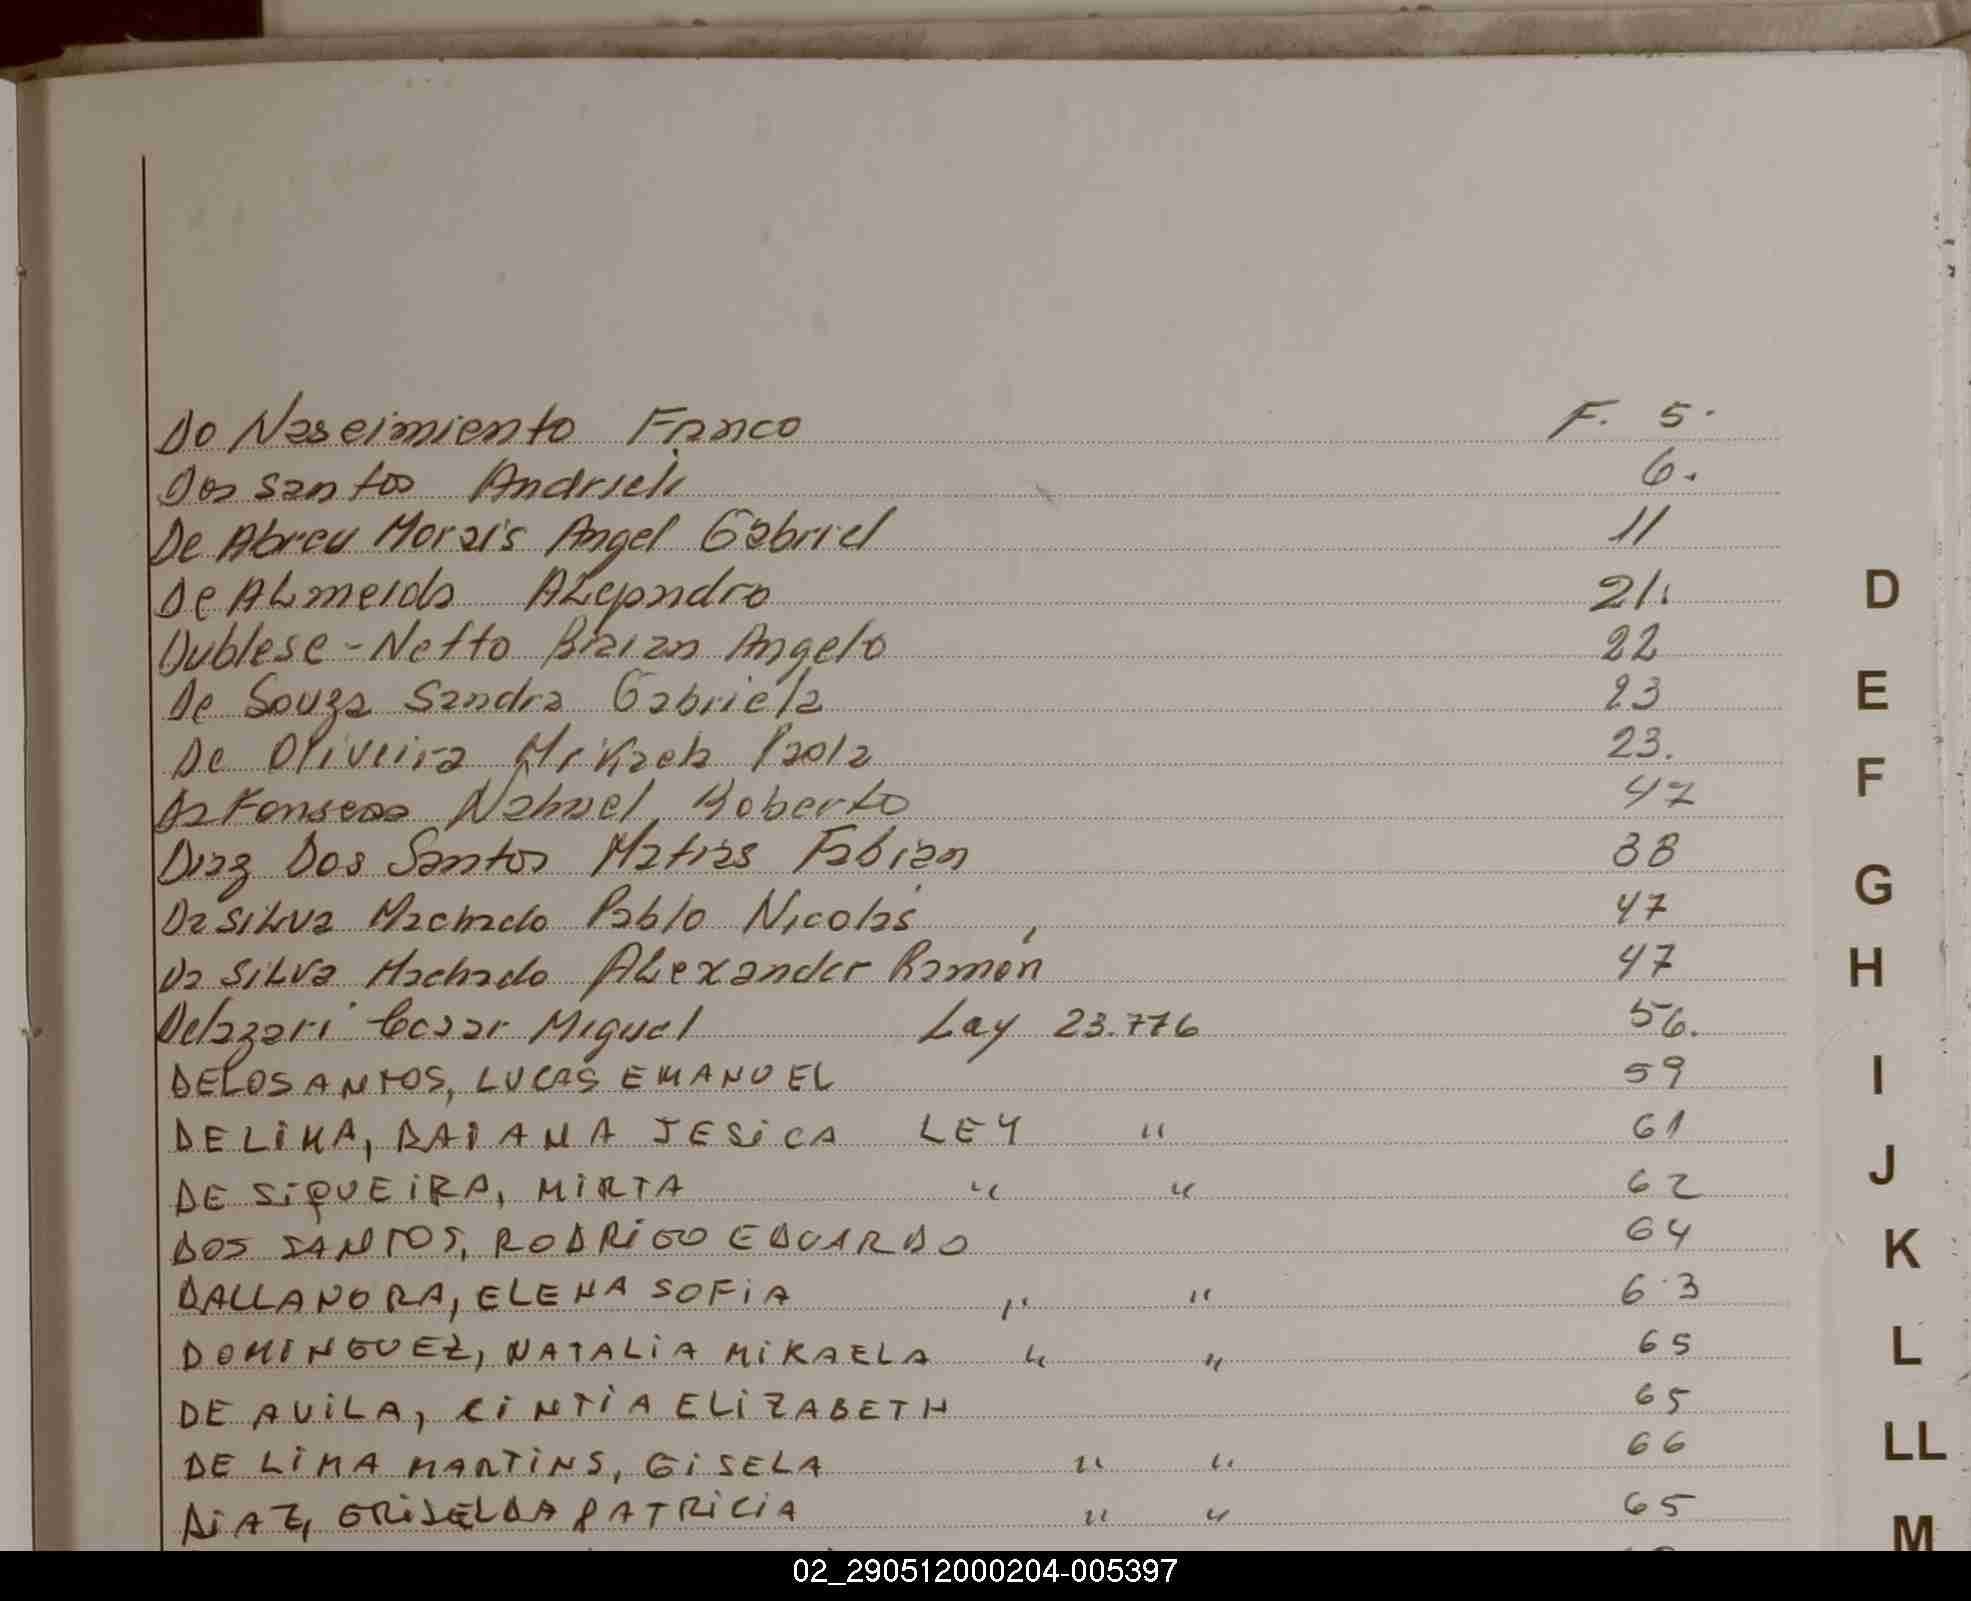 Do Nascimiento Franco F. 5.
Dos Santos Andrieli 6.
De Abreu Morais Angel Gabriel 11
De ALmeida ALejandro 21.
Dublese-Netto Brian Angelo 22
De Souza Sandra Gabriela 23
De Oliveira Mikaela Paola 23.
Da Fonseca Nahuel Roberto 47
Diaz Dos Santos Matias Fabian 38
Da SiLva Machado Pablo Nicolas 47
Da SiLva Machado ALexander Ramón 47
Delazari Cesar Miguel Ley 23.776 56.
DELOSANTOS, LUCAS EMANUEL 59
DE LIMA, DAIANA JESICA LEY " 61
DE SIQUEIRA, MIRTA " " 62
DOS SANTOS, RODRIGO EDUARDO 64
DALLANORA, ELENA SOFIA " " 63
DOMINGUEZ, NATALIA MIKAELA " " 65
DE AVILA, CINTIA ELIZABETH 65
DE LIMA MARTINS, GISELA " " 66
DIAZ, GRISELDA PATRICIA " " 65
D
E
F
G
H
I
J
K
L
LL
M
02_290512000204-005397